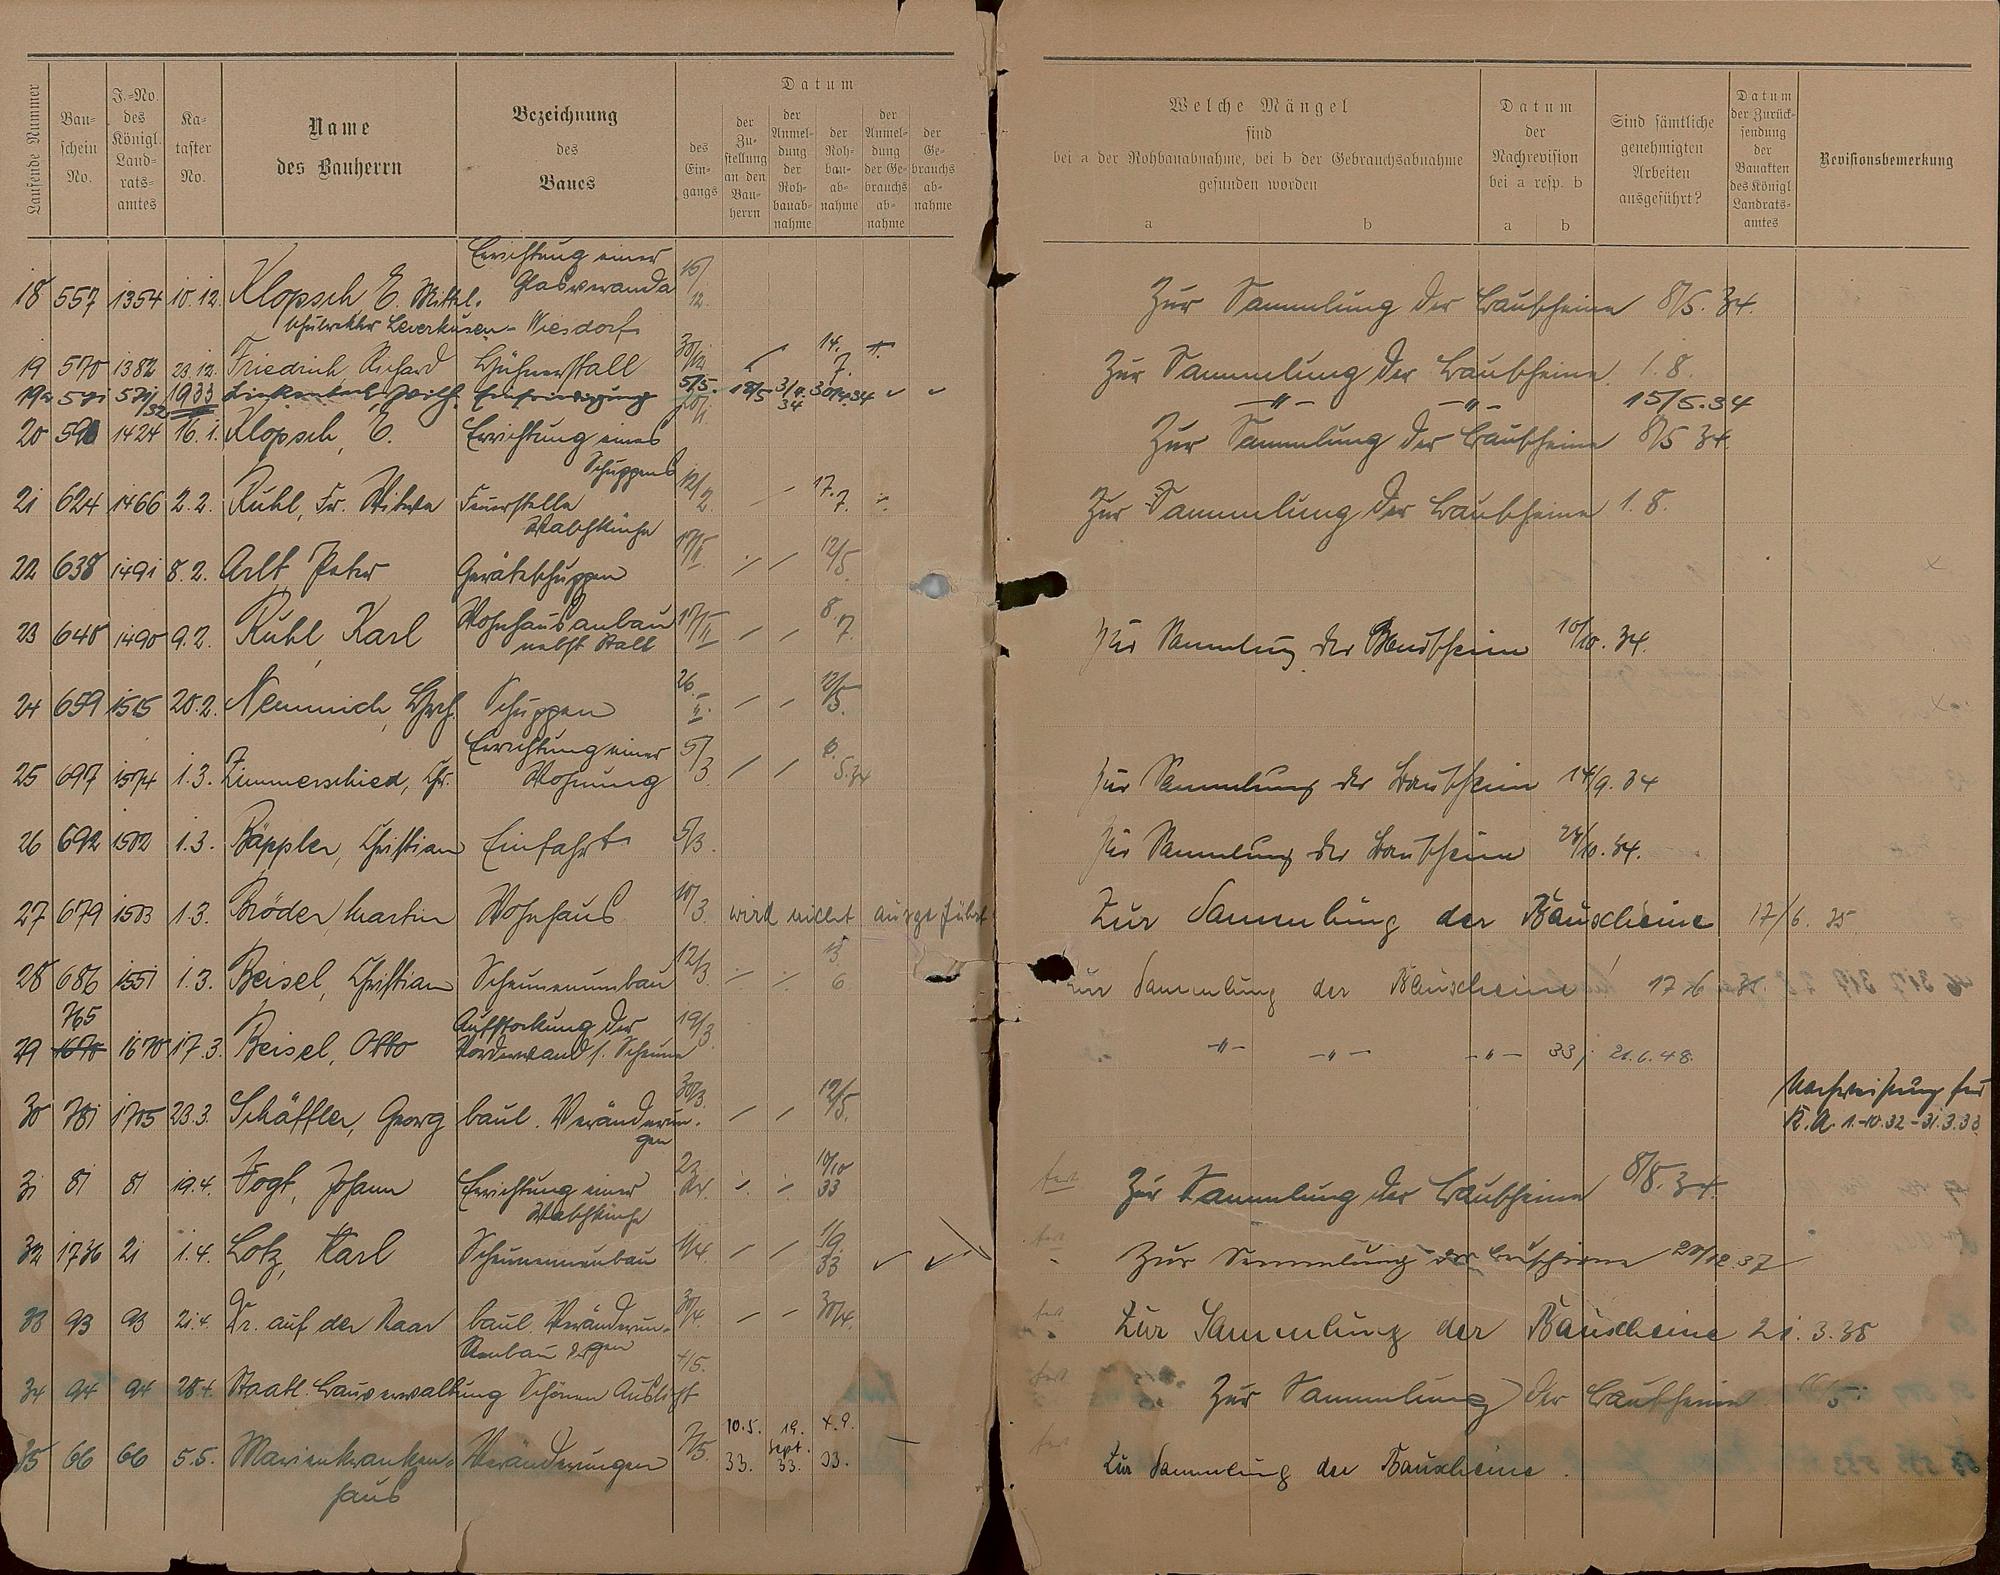 Laufende Nummer
Bau-
schein
No.
J.-No.
des
Königl.
Land-
rats-
amtes
Ka-
taster
No.
Name
des Bauherrn
Bezeichnung
des
Baues
Datum
des
Ein-
gangs
der
Zu-
stellung
an den
Bau-
herrn
der
Anmel-
dung
der
Roh-
bauab-
nahme
der
Roh-
bau-
ab-
nahme
der
Anmel-
dung
der Ge-
brauchs
ab-
nahme
der
Ge-
brauchs
ab-
nahme
Welche Mängel
sind
bei a der Rohbauabnahme, bei b der Gebrauchsabnahme
gefunden worden
a b
Datum
der
Nachrevision
bei a resp. b
a b
Sind sämtliche
genehmigten
Arbeiten
ausgeführt?
Datum
der Zurück-
sendung
der
Bauakten
des Königl
Landrats-
amtes
Revisionsbemerkung
Errichtung einer
18 557 1354 10.12. Klopsch E. Mittel- Glasveranda 15/12. Zur Sammlung der Bauscheine 8/5. 34.
schullehrer Leverkusen-Wiesdorf
19 570 1382 23.12. Friedrich Richard Hühnerstall 30/12 14.7. Zur Sammlung der Bauscheine 1.8.
19a 571 571/32 1933 Wilh. Einfriedigung 5/5. 18/5 3/4. 34 30/4.34 -"- -"- 15/5.34
20 590 1424 16.1. Klopsch, E. Errichtung eines 20/1. Zur Sammlung der Bauscheine 8/5 34.
Schuppens
21 624 1466 2.2. Ruhl, Fr. Witwe Feuerstelle 12/2. 17.7. Zur Sammlung der Bauscheine 1.8.
Waschküche
22 638 1491 8.2. Arlt, Peter Geräteschuppen 17/II. 12/5.
23 640 1490 9.2. Ruhl, Karl Wohnhausanbau 17/II 8.7. Zur Sammlung der Bauscheine 10/10. 34.
nebst Stall
24 659 1515 20.2. Nemnich, Hrch. Schuppen 26.II. 12/5.
Errichtung einer
25 697 1574 1.3. Zimmerschied, Chr. Wohnung 5/3 6.5.34 Zur Sammlung der Bauscheine 14/9. 34
26 692 1502 1.3. Bäppler, Christian Einfahrt 5/3. Zur Sammlung der Bauscheine 24/10. 34.
27 679 1503 1.3. Bröder, Martin Wohnhaus 10/3. wird nicht ausgeführt Zur Sammlung der Bauscheine 17/6. 35
28 686 1551 1.3. Beisel, Christian Scheunenumbau 12/3. 15 6 Zur Sammlung der Bauscheine 17 6 35.
765 Aufstockung der
29 1670 1670 17.3. Beisel, Otto Vorderwand s. Scheune 19/3. -"- -"- -"- 33/ 21.6.48.
30 781 1705 23.3. Schäffler, Georg baul. Veränderun- 30/3. 12/5. Nachweisung für
gen K.A. 1.-10.32-31.3.33
31 81 81 19.4. Vogt, Johann Errichtung einer 22/IV. 10/10 33 fert Zur Sammlung der Bauscheine 8/5. 34.
Waschküche
32 1736 21 1.4. Lotz, Karl Scheunenneubau 4/4. 1/9. 33 fert Zur Sammlung der Bauscheine 20/12.37
33 93 93 21.4. Dr. auf der Naar baul. Veränderun- 30/4. 30/4. fert Zur Sammlung der Bauscheine 21.3.35
gen
Neubau der
34 94 94 28.4. Staatl. Bauverwaltung Schönen Aussicht 4/5. fert Zur Sammlung der Bauscheine
35 66 66 5.5. Marienkranken- Veränderungen 7/5. 10.5. 33. 19. Sept. 33. 4.9. 33. fert Zur Sammlung der Bauscheine.
haus